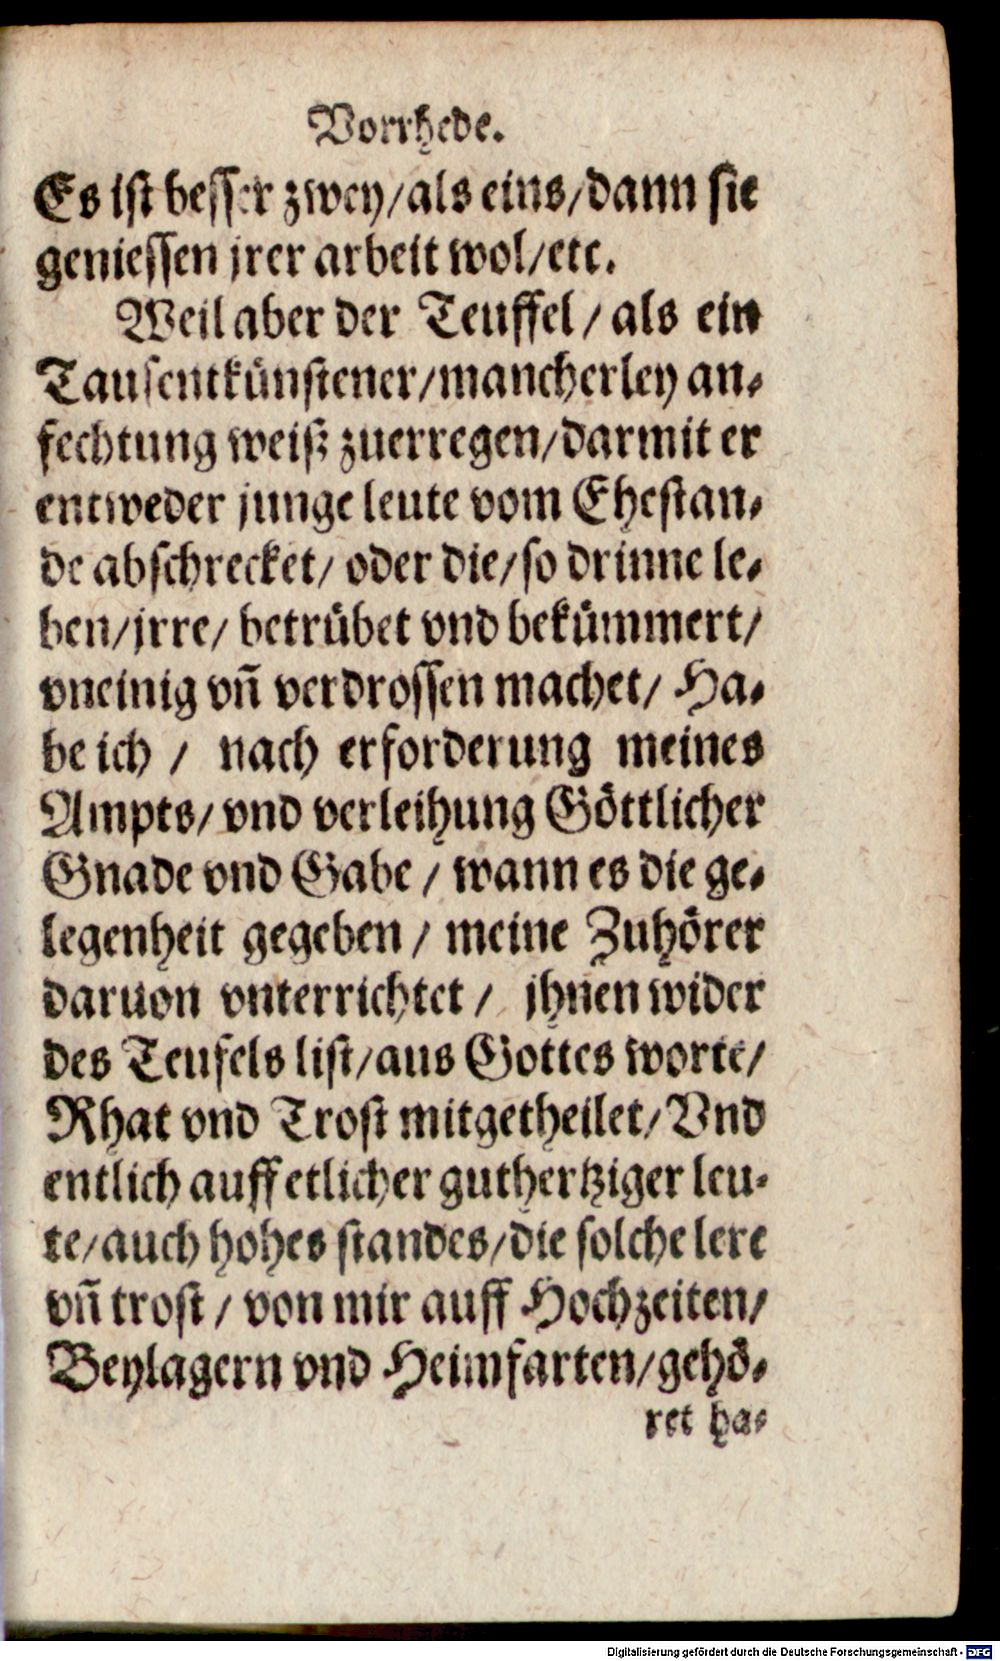 Vorrhede.
Es ist besser zwey/als eins/dann sie
geniessen jrer arbeit wol/etc.
Weil aber der Teuffel/ als ein
Tausentkünstener/mancherley an-
fechtung weiß zuerregen/darmit er
entweder junge leute vom Ehestan-
de abschrecket/ oder die/so drinne le-
ben/jrre/ betrübet vnd bekümmert/
vneinig vñ verdrossen machet/ Ha-
be ich / nach erforderung meines
Ampts/ vnd verleihung Göttlicher
Gnade vnd Gabe / wann es die ge-
legenheit gegeben / meine Zuhörer
daruon vnterrichtet / jhnen wider
des Teufels list/aus Gottes worte/
Rhat vnd Trost mitgetheilet/ Vnd
entlich auff etlicher guthertziger leu-
te/auch hohes standes/die solche lere
vñ trost / von mir auff Hochzeiten/
Beylagern vnd Heimfarten/gehö-
ret ha-
Digitalisierung gefördert durch die Deutsche Forschungsgemeinschaft - DFG